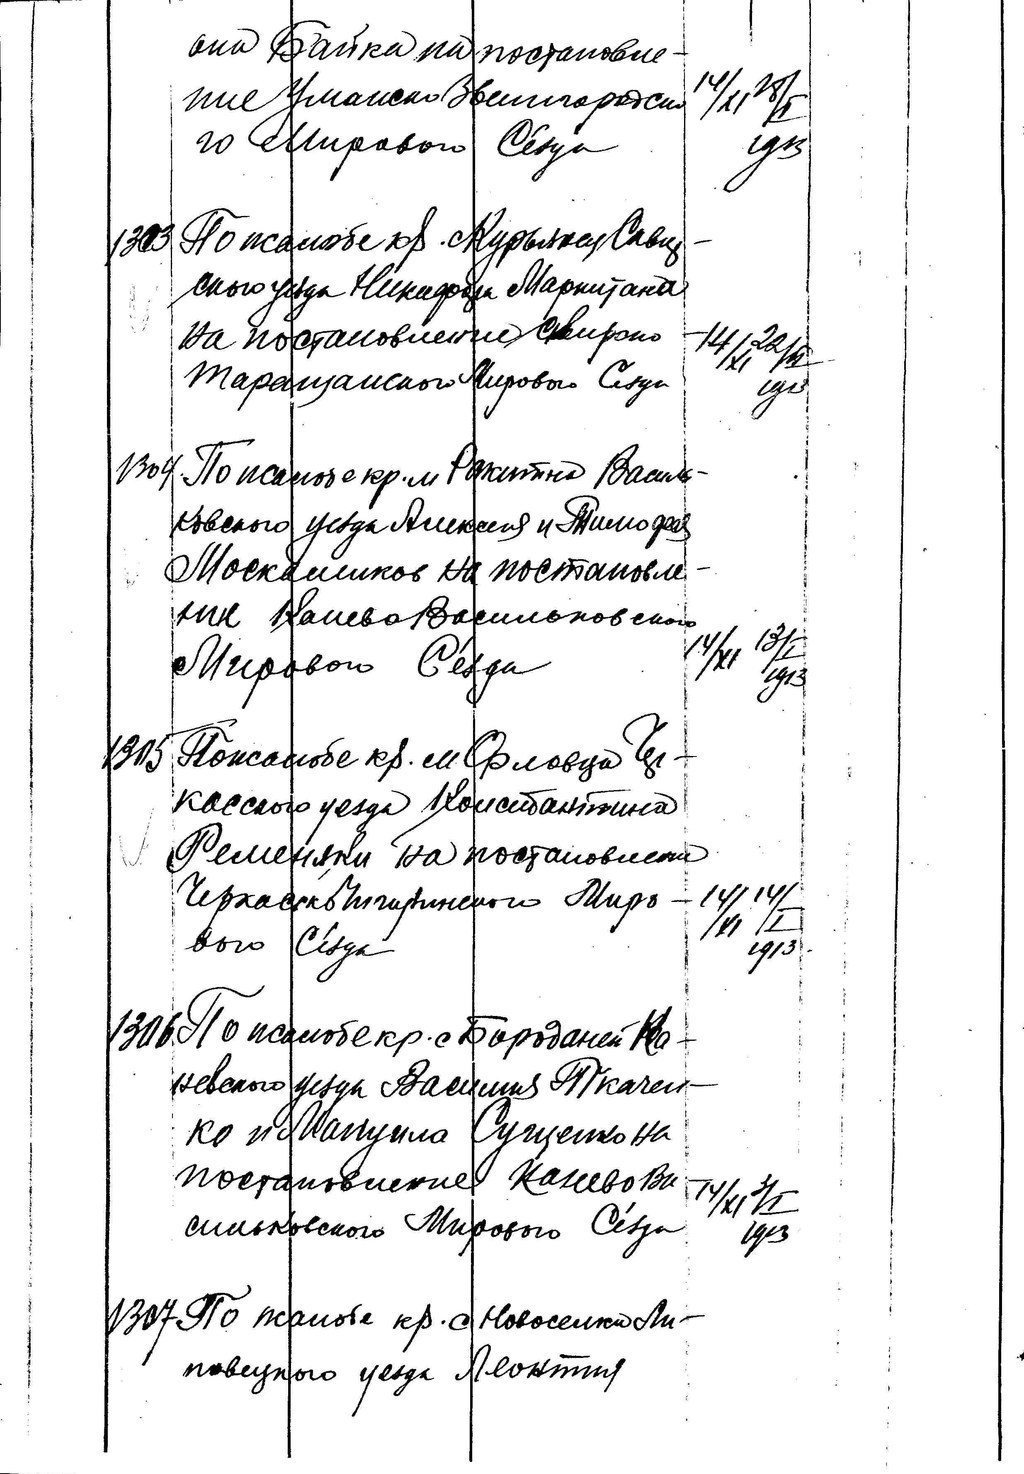 она Байка на постановле-
ние Уманско Звенигородско 14/XI 28/I
го Мирового Сѣзда 1913
1303 По жалобе кр. с Курьянец Сквир-
ского уезда Никифора Маркитана
на постановление Сквирско - 14/XI 22/
Таращанского Мирового Сѣзда 1913
1304 По жалобе кр. м Ракитна Василь-
ковского уезда Алексея и Тимофея
Москаликов на постановле-
ние Канево Васильковского
Мирового Сѣзда 14/XI 13/I 1913
1305 По жалобе кр. м Орловца Чер-
касского уезда Константина
Ременяки на постановлени
Черкасско Чигиринского Миро- 14/XI 14/I
вого Сѣзда 1913
1306 По жалобе кр. с Бороданей Ка-
невского уезда Василия Ткачен-
ко и Мануила Сущенко на
постановление Канево Ва
сильковского Мирового Сѣзда 14/XI 3/I 1913
1307 По жалобе кр. с Новоселки Ли-
повецкого уезда Леонтия